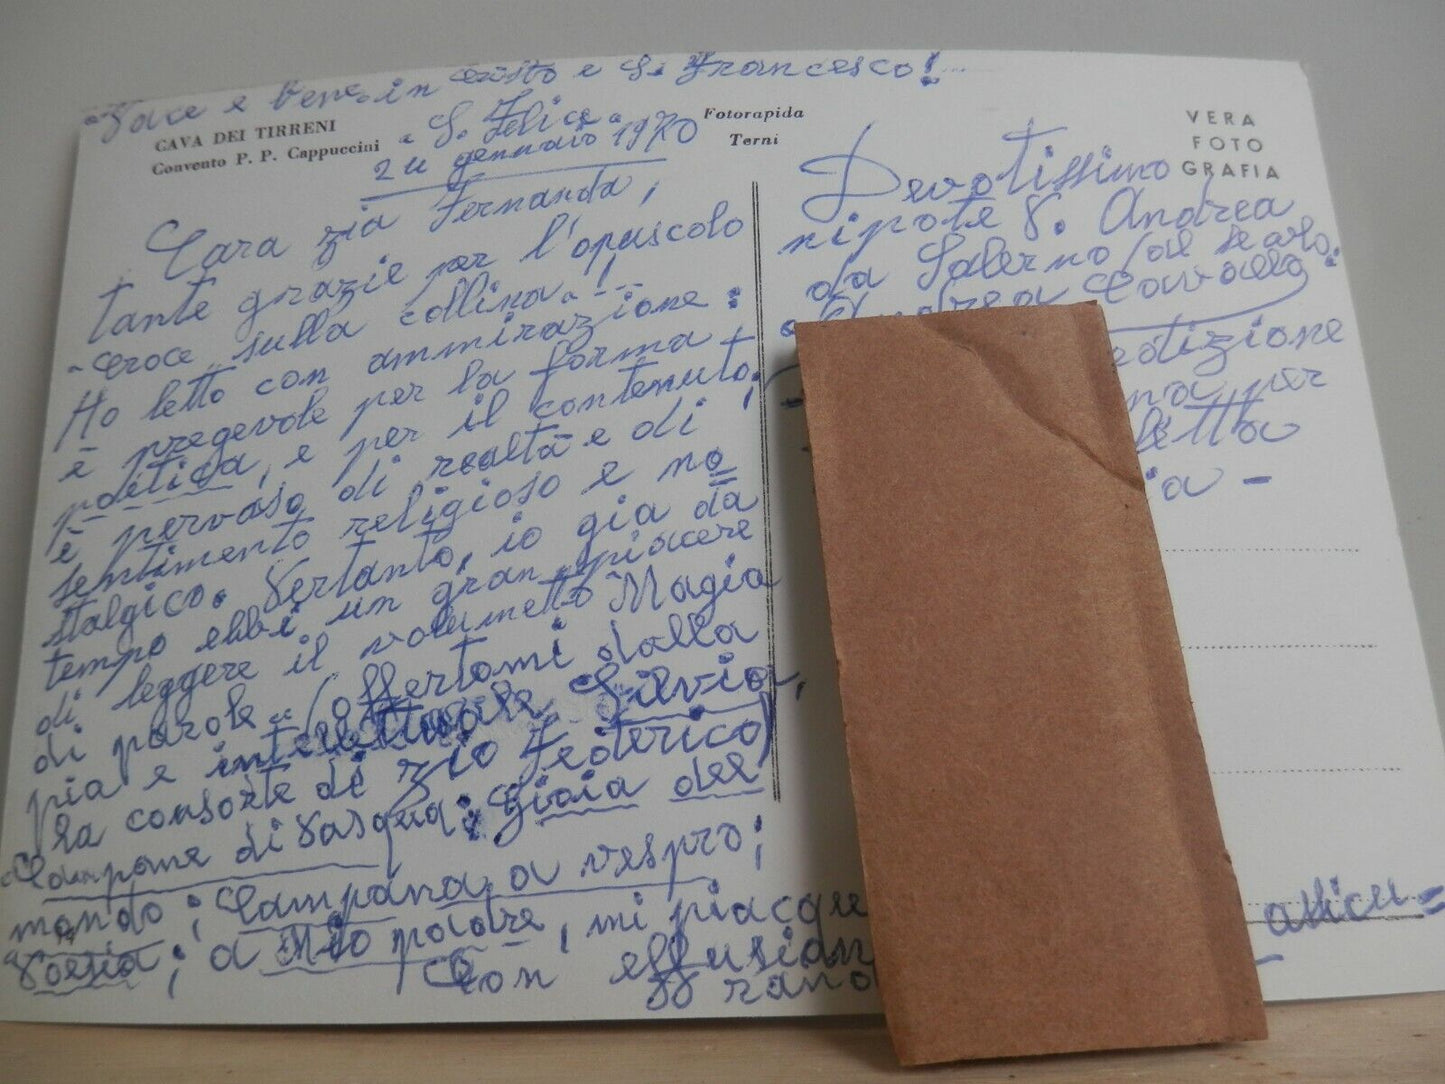 Pace e bene in Cristo e S. Francesco!
CAVA DEI TIRRENI
Convento P. P. Cappuccini
Fotorapida
Terni
VERA
FOTO
GRAFIA
"S. Felice"
24 gennaio 1970
Cara zia Fernanda,
tante grazie per l'opuscolo
"Croce sulla collina"!
Ho letto con ammirazione:
è pregevole per la forma
poetica, e per il contenuto;
è pervaso di realtà e di
sentimento religioso e no
stalgico. Pertanto, io già da
tempo ebbi un gran piacere
di leggere il volumetto Magia
di parole" (offertomi dalla
pia e Silvia,
la consorte di zio Federico)
Campane di Pasqua; Gioia del
mondo; Campana a vespro;
Poesia; a Mio padre, mi piacque
Con effusion
Devotissimo
nipote P. Andrea
da Salerno (al secolo:
Andrea Cavallo
edizione
per
letta
ia -
assicu=